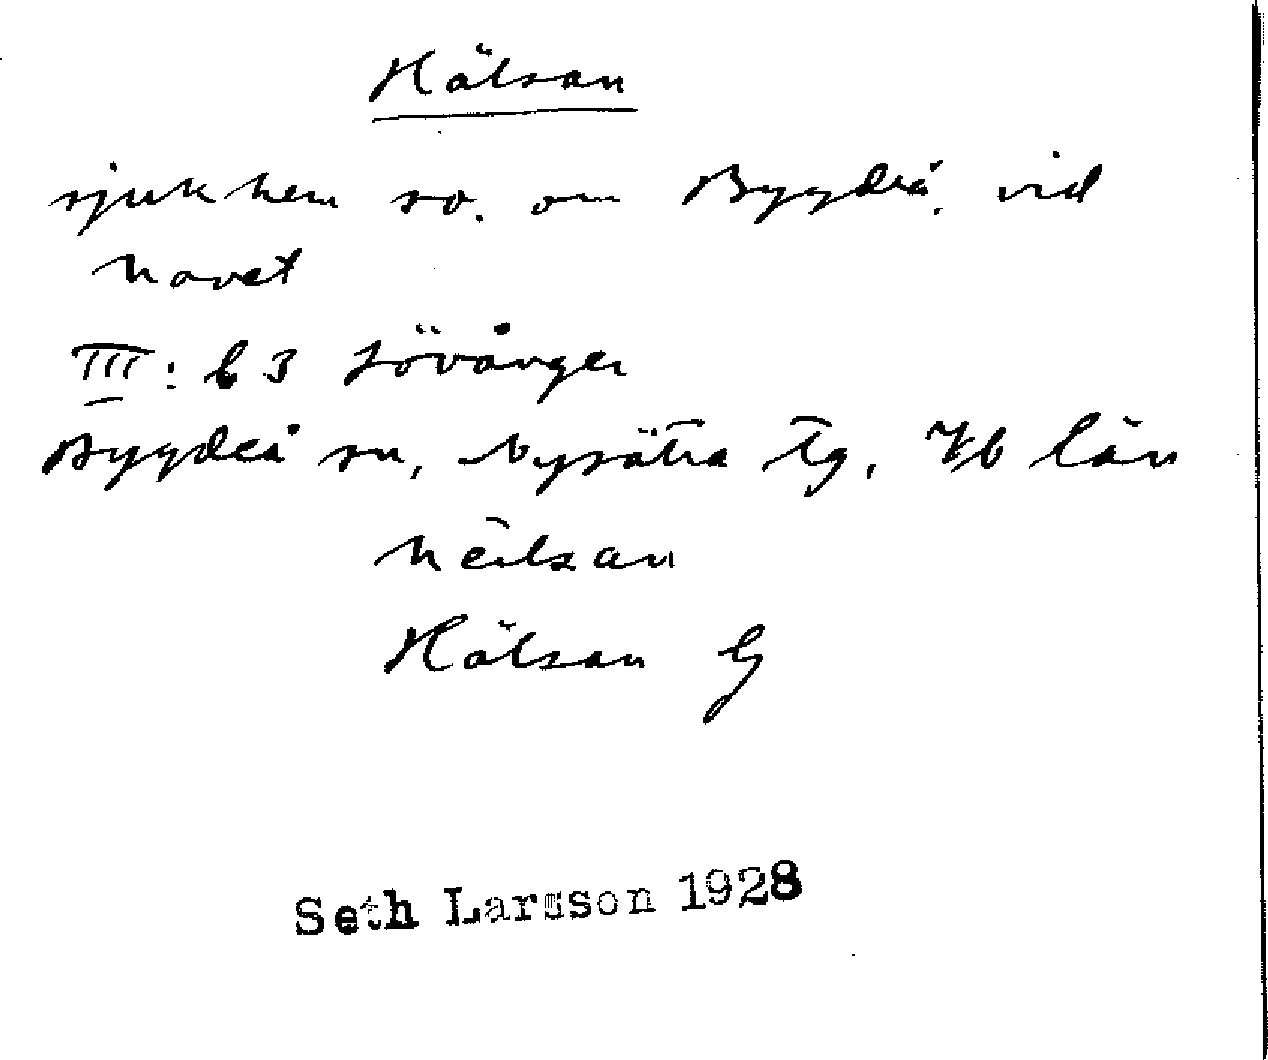 Hälsan
sjukhem so. om Bygdeå, vid
havet
III: b 3 Lövånger
Bygdeå sn, Nysätra tg, Vb län
hēilsan
Hälsan G
Seth Larsson 1928